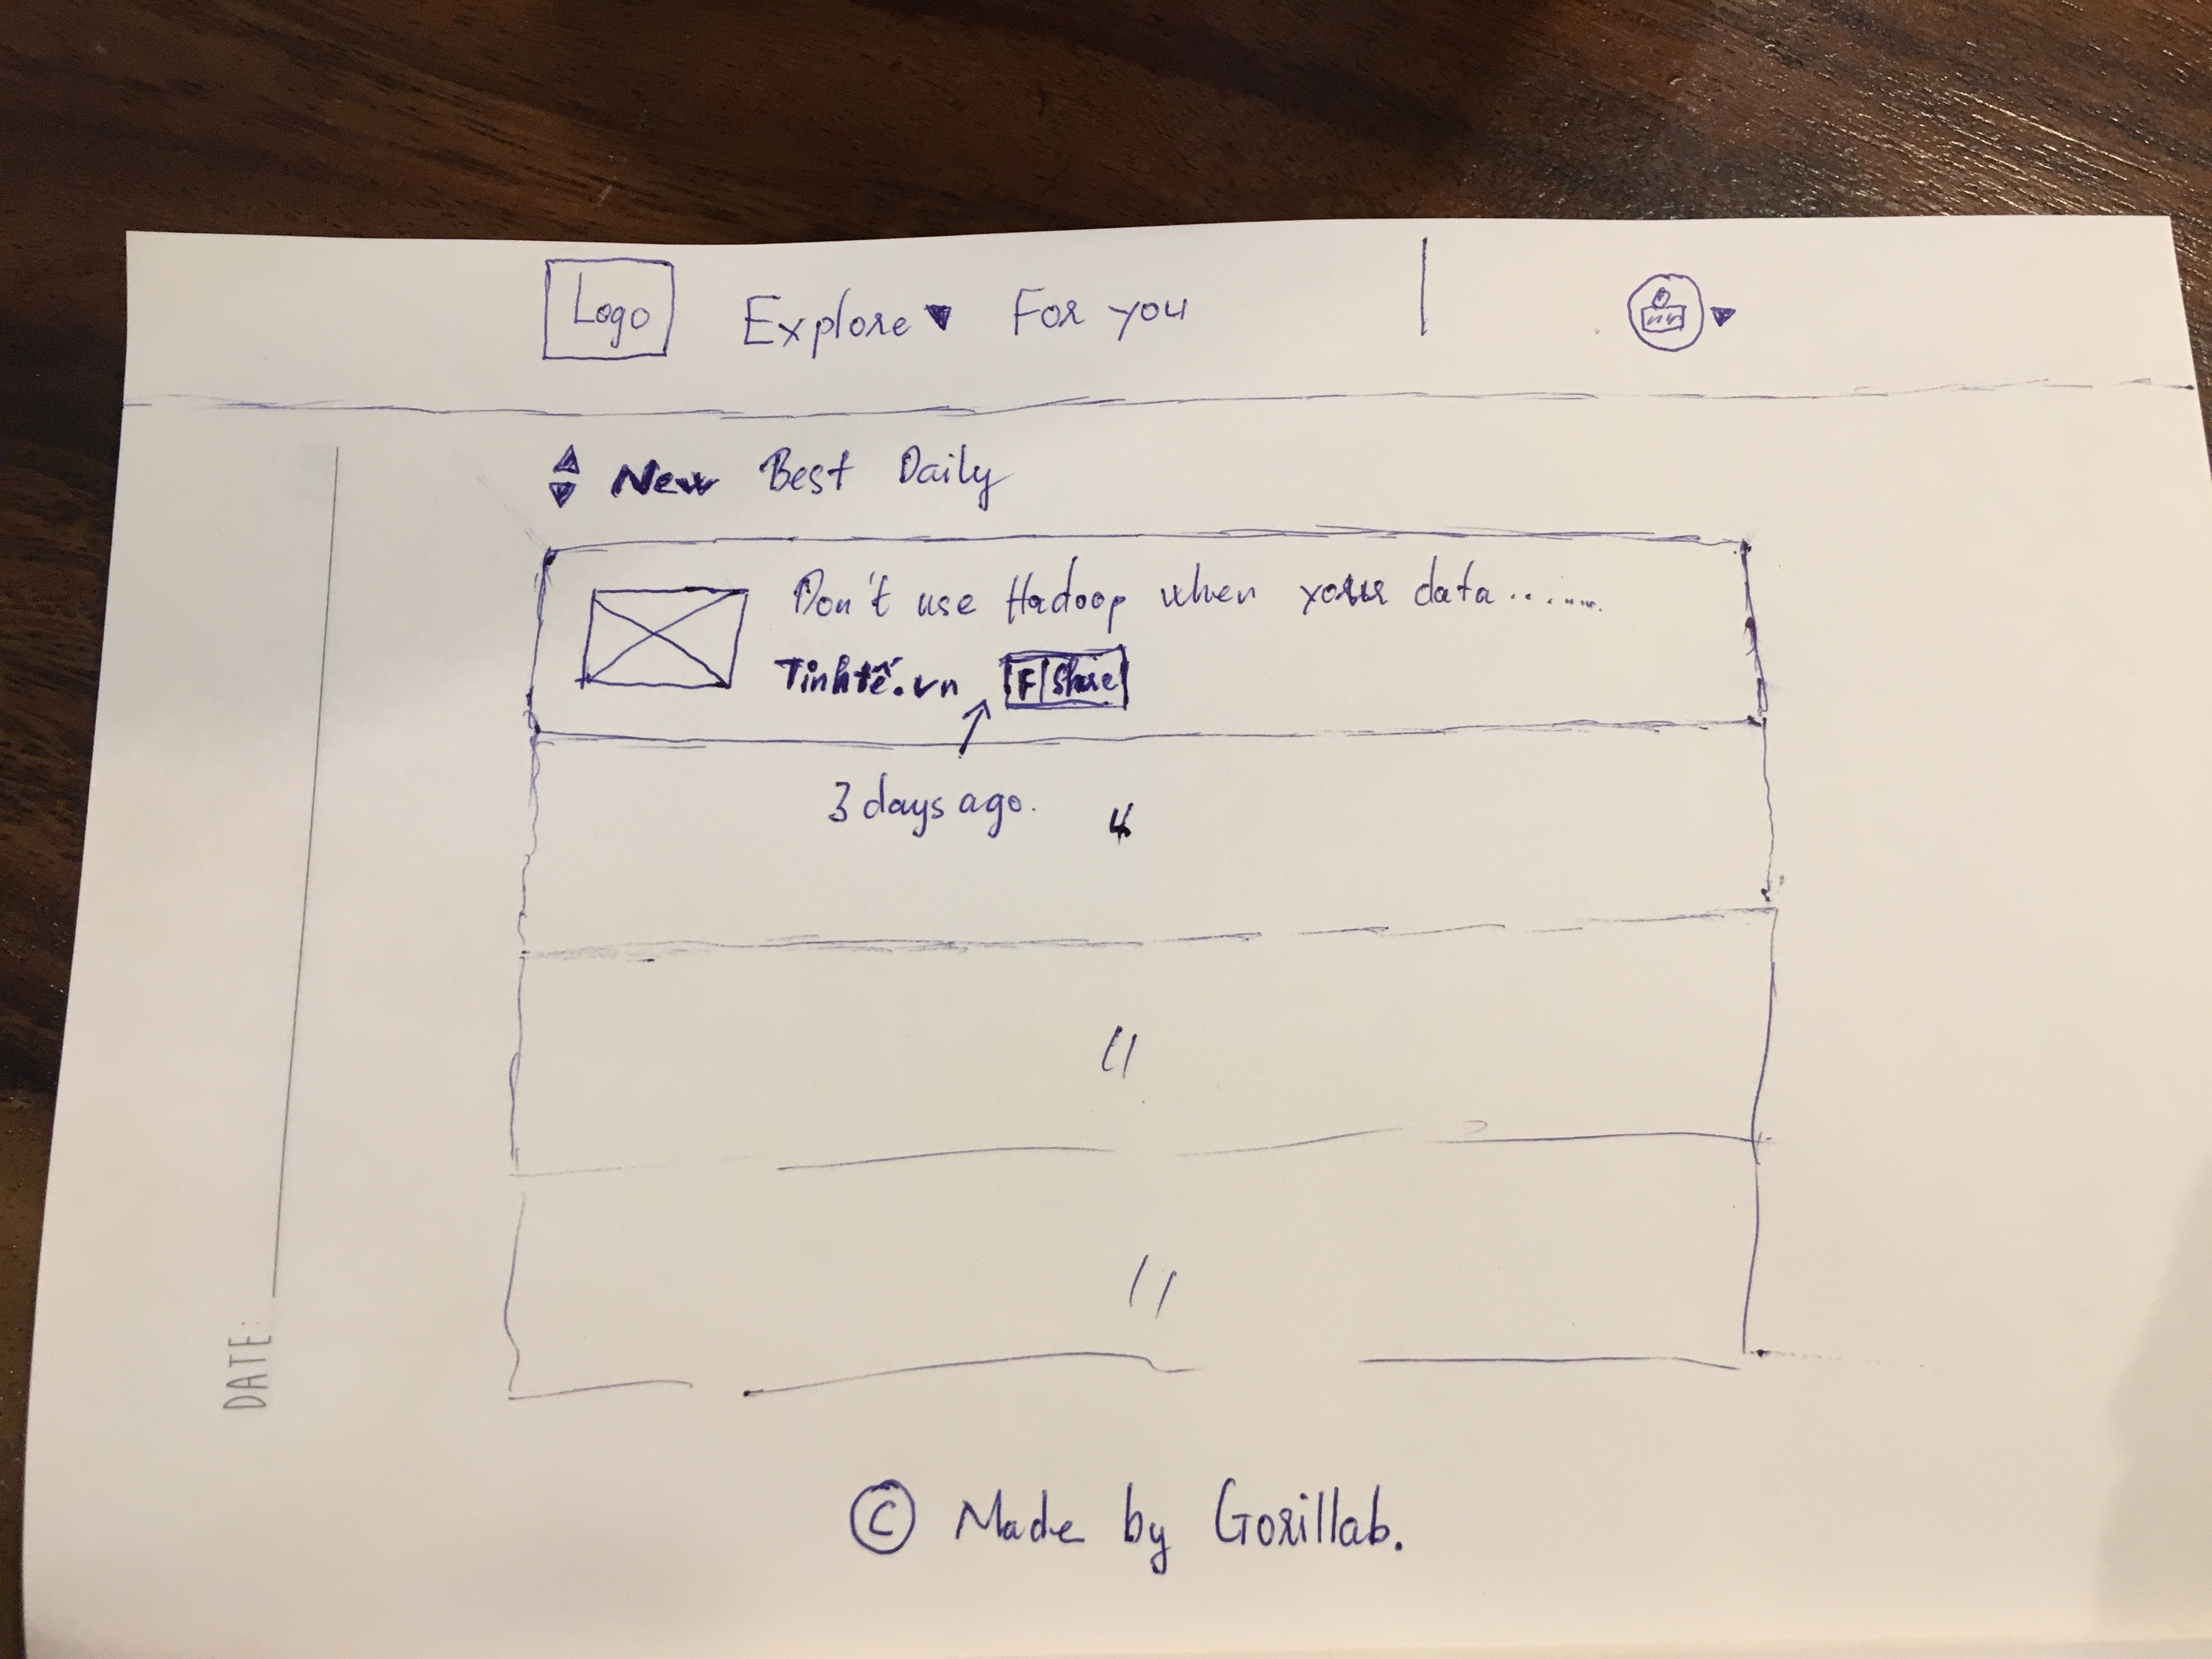 Logo Explore For you
New Best Daily
Don't use Hadoop when your data........
Tinhtế.vn F Share
3 days ago.
"
"
"
© Made by Gorillab.
DATE: